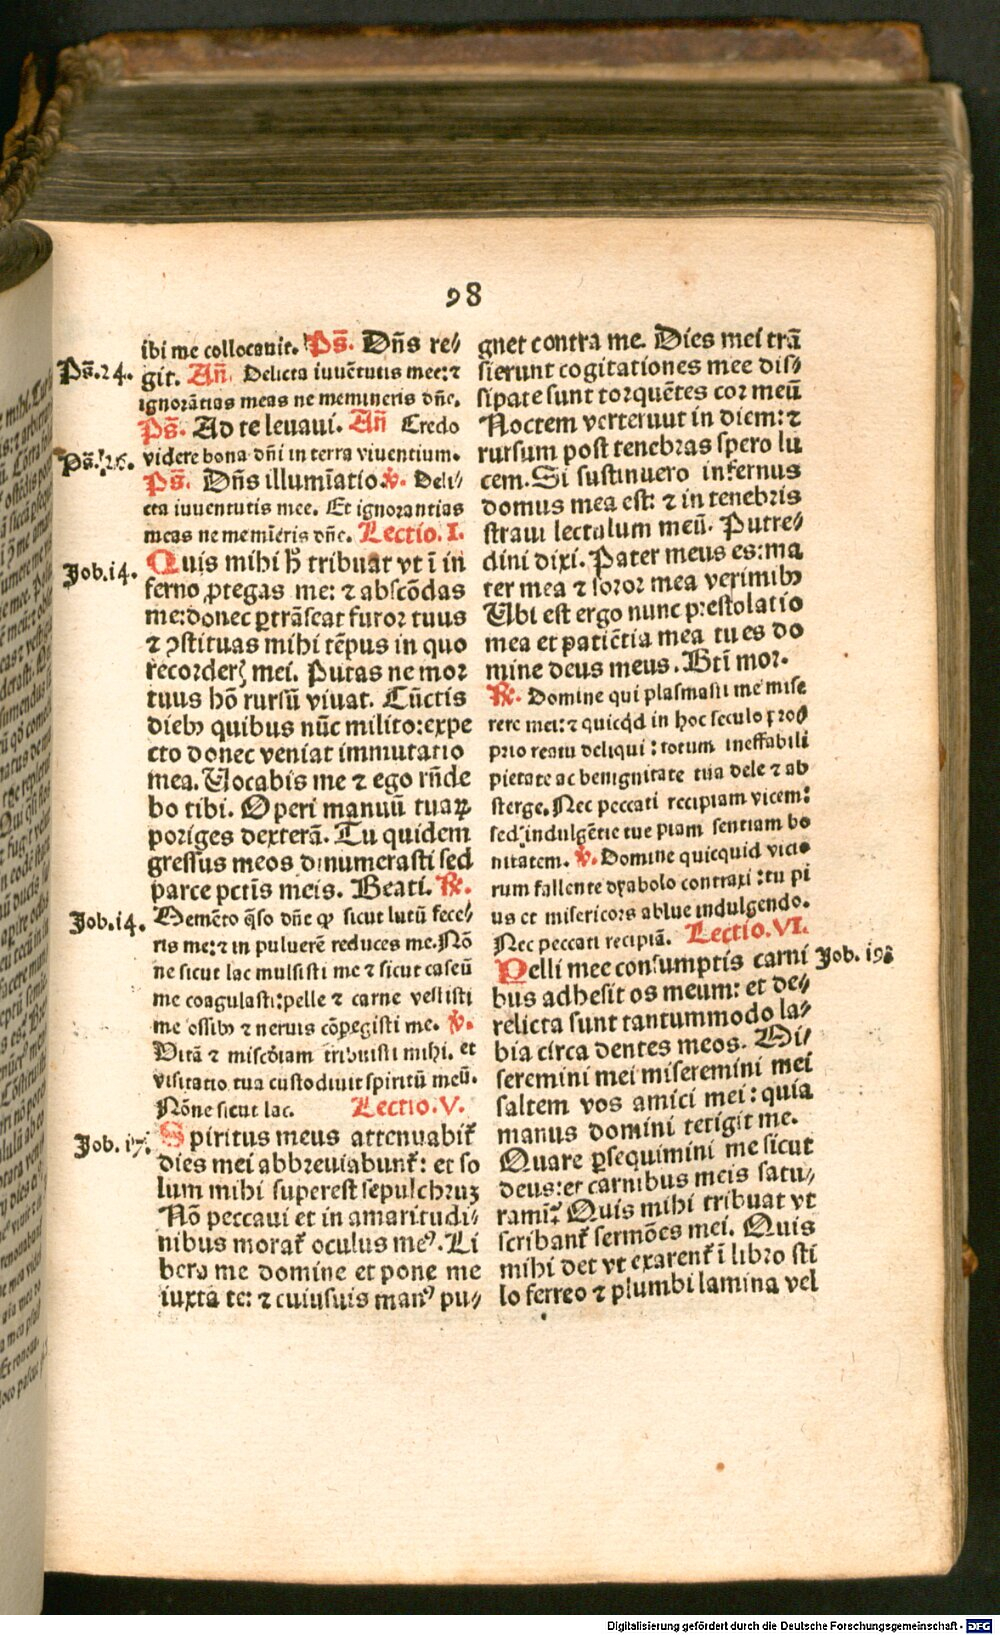 98
ibi me collocauit. Ps̄. Dn̄s re⸗
Ps̄.24.
git. An̄. Delicta iuuētutis mee:⁊
ignorātias meas ne memineris dn̄e.
Ps̄. Ad te leuaui. An̄ Credo
Ps̄.26.
videre bona dn̄i in terra viuentium.
Ps̄. Dn̄s illumīatio. ℣. Deli⸗
cta iuuentutis mee. Et ignorantias
meas ne memīeris dn̄e. Lectio.I.
Job.14.
Quis mihi h̄ tribuat vt ī in
ferno ꝓtegas me: ⁊ abscōdas
me:donec ꝑtrāseat furor tuus
⁊ ꝯstituas mihi tēpus in quo
recorderꝫ mei. Putas ne mor
tuus hō rursū viuat. Cūctis
dieb⁹ quibus nūc milito:expe
cto donec veniat immutatio
mea. Uocabis me ⁊ ego rn̄de
bo tibi. Operi manuū tuaꝝ
poriges dexterā. Tu quidem
gressus meos dinumerasti sed
parce pctīs meis. Beati. ℟.
Job.14.
Memēto q̄so dn̄e ꝙ sicut lutū fece⸗
ris me:⁊ in puluerē reduces me. Nō
ne sicut lac mulsisti me ⁊ sicut caseū
me coagulasti:pelle ⁊ carne vestisti
me ossib⁹ ⁊ neruis cōpegisti me. ℣.
Vitā ⁊ miscd̄iam tribuisti mihi. et
visitatio tua custodiuit spiritū meū.
Nōne sicut lac. Lectio.V.
Job.17.
Spiritus meus attenuabiť
dies mei abbreuiabunť: et so
lum mihi superest sepulchruꝫ
Nō peccaui et in amaritudi⸗
nibus morať oculus me⁹. Li
bera me domine et pone me
iuxta te: ⁊ cuiusuis man⁹ pu⸗
gnet contra me. Dies mei trā
sierunt cogitationes mee dis⸗
sipate sunt torquētes cor meū
Noctem verterunt in diem:⁊
rursum post tenebras spero lu
cem. Si sustinuero infernus
domus mea est: ⁊ in tenebris
straui lectulum meū. Putre⸗
dini dixi. Pater meus es:ma
ter mea ⁊ soror mea vermib⁹
Ubi est ergo nunc prestolatio
mea et patiētia mea tu es do
mine deus meus. Btī mor.
℟. Domine qui plasmasti me mise
rere mei:⁊ quicq̄d in hoc seculo pro⸗
prio reatu deliqui:totum ineffabili
pietate ac benignitate tua dele ⁊ ab
sterge. Nec peccati recipiam vicem:
sed indulgētie tue piam sentiam bo
nitatem. ℣. Domine quicquid vicio
rum fallente dyabolo contraxi:tu pi
us et misericors ablue indulgendo.
Nec peccati recipiā. Lectio.VI.
Pelli mee consumptis carni
Job. 19.
bus adhesit os meum: et de⸗
relicta sunt tantummodo la⸗
bia circa dentes meos. Mi⸗
seremini mei miseremini mei
saltem vos amici mei:quia
manus domini tetigit me.
Quare ꝑsequimini me sicut
deus:et carnibus meis satu⸗
ramī? Quis mihi tribuat vt
scribanť sermōes mei. Quis
mihi det vt exarenť ī libro sti
lo ferreo ⁊ plumbi lamina vel
Digitalisierung gefördert durch die Deutsche Forschungsgemeinschaft - DFG